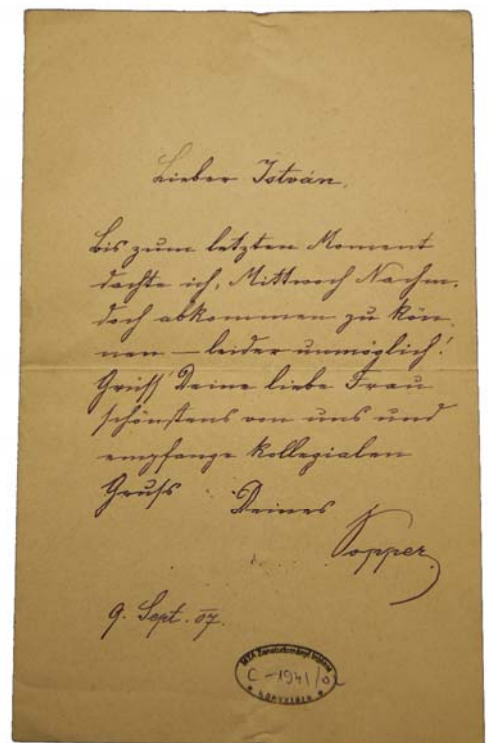 Lieber István.
Bis zum letzten Moment
dachte ich, Mittwoch Nachm.
doch abkommen zu kön
nen – leider unmöglich!
Grüss' Deine liebe Frau
schönstens von uns und
empfange kollegialen
Gruss Deines
Popper
9. Sept. 07.
MTA Zenetudományi Intézet
C-1941/02
KÖNYVTÁR